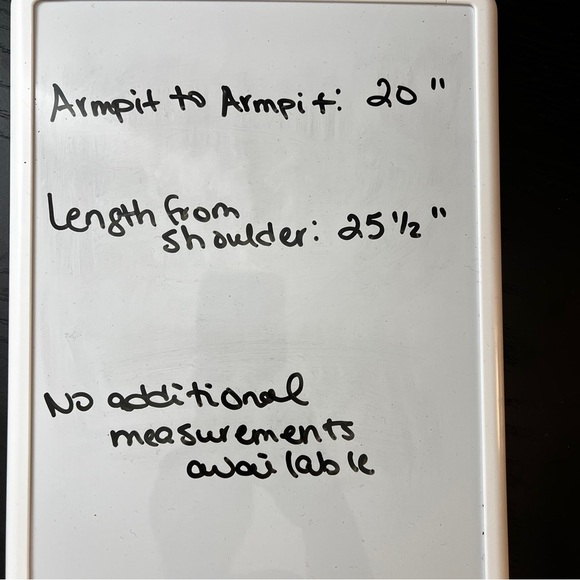 Armpit to Armpit: 20"
Length from
shoulder: 25 1/2"
No additional
measurements
available